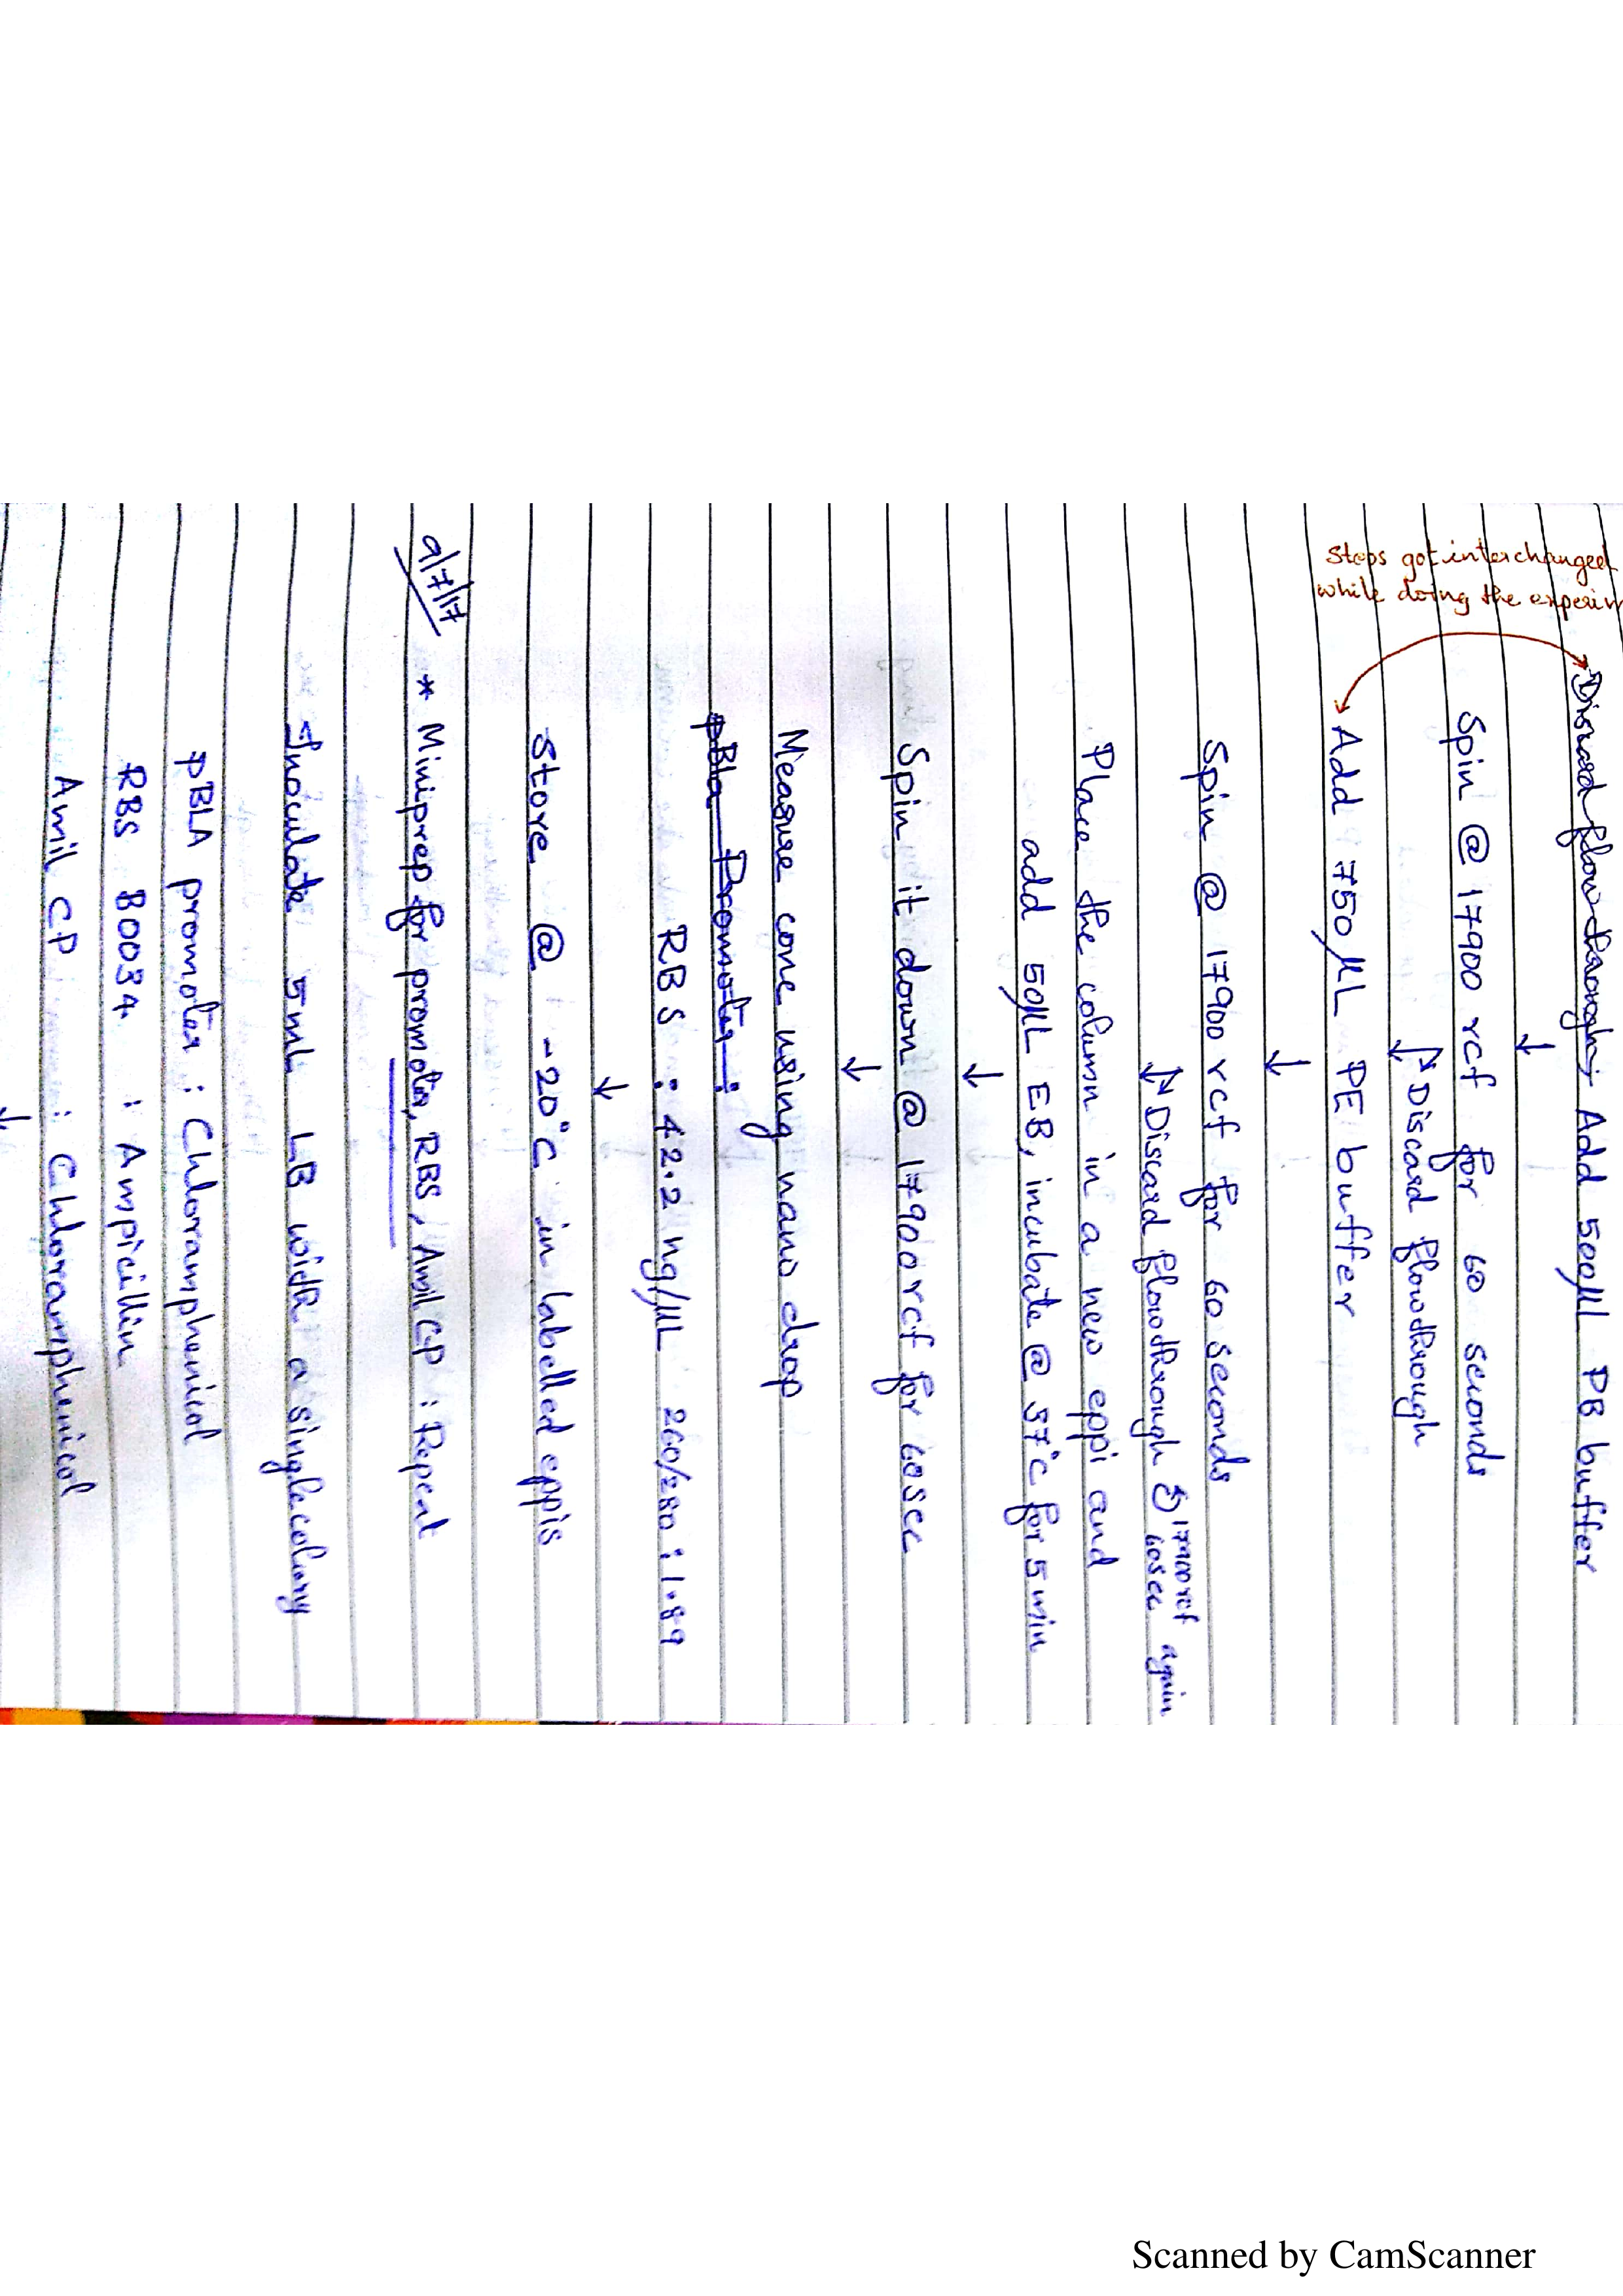 Steps got interchanged
while doing the experim
Discard flow through Add 500µL PB buffer
↓
Spin @ 17900 rcf for 60 seconds
↓ Discard flowthrough
Add 750µL PE buffer
↓
Spin @ 17900 rcf for 60 seconds
↓ Discard flowthrough 17900 rcf
60sec again
Place the column in a new eppi and
add 50µL EB, incubate @ 37°C for 5 min
↓
Spin it down @ 17900 rcf for 60 sec
↓
Measure conc using nano drop
pBla Promoter :
RBS : 42.2 ng/µL 260/280 : 1.89
↓
Store @ -20°C in labelled eppis
9/7/17
* Miniprep for promoter, RBS, Amil CP : Repeat
Inoculate 5mL LB with a single colony
pBLA promoter : Chloramphenicol
RBS B0034 : Ampicillin
Amil CP : Chloramphenicol
↓
Scanned by CamScanner